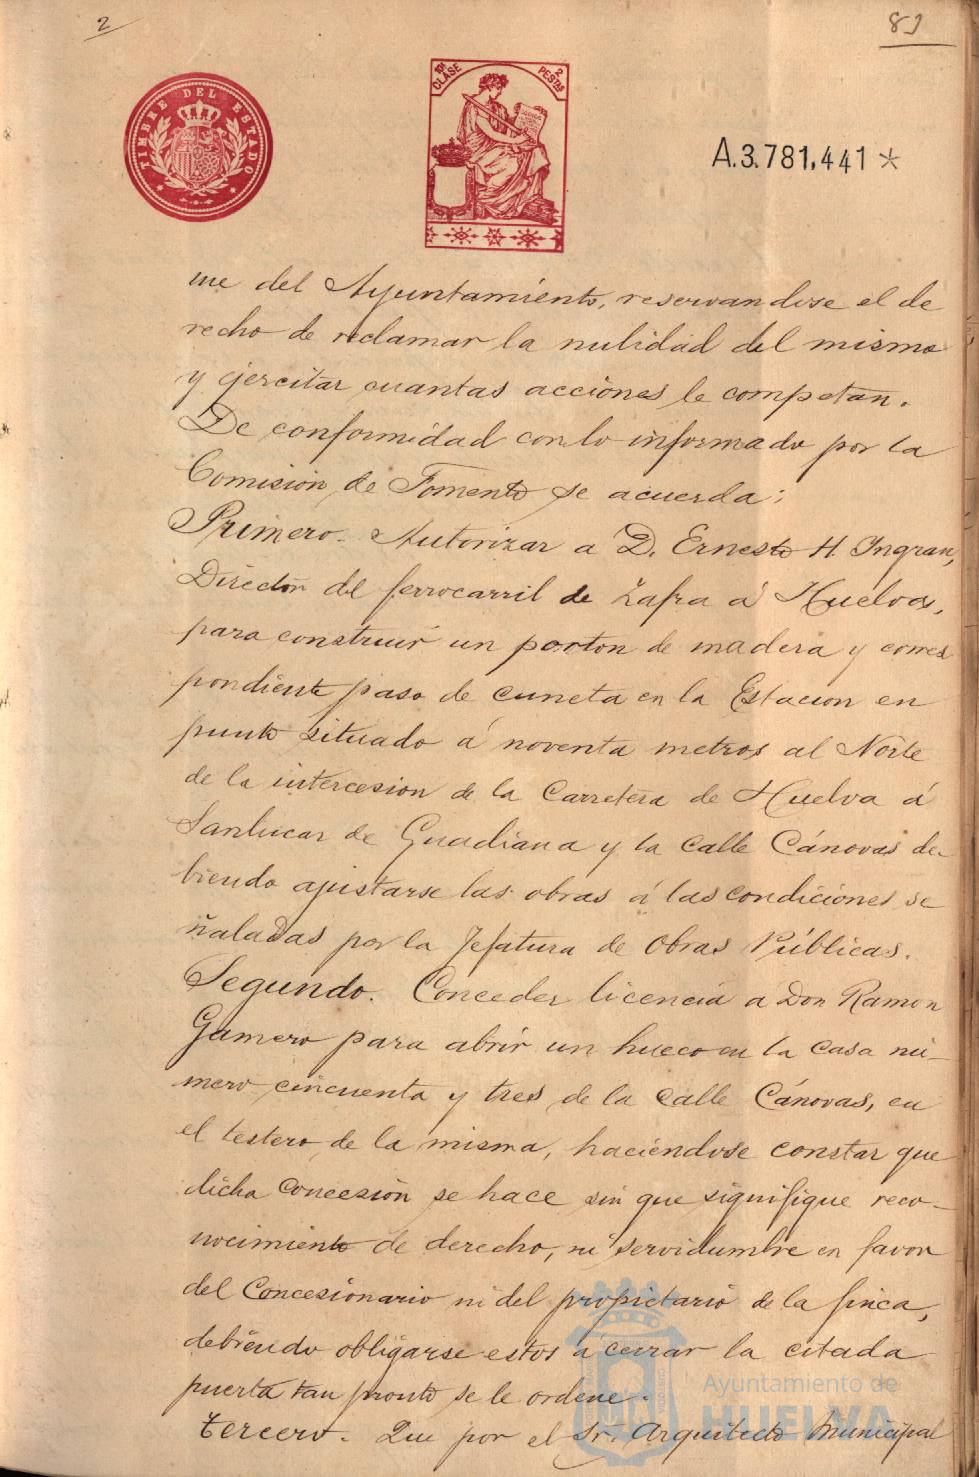 2
89
TIMBRE DEL ESTADO
10ª CLASE
2 PESTAS
A.3.781,441 *
me del Ayuntamiento, reservandose el de
recho de reclamar la nulidad del mismo
y ejercitar cuantas acciones le competan.
De conformidad con lo informado por la
Comision de Fomento se acuerda:
Primero. Autorizar a D. Ernesto H. Ingran,
Director del ferrocarril de Zafra á Huelva,
para construir un porton de madera y corres
pondiente paso de cuneta en la Estacion en
punto situado á noventa metros al Norte
de la intercesion de la Carretera de Huelva á
Sanlucar de Guadiana y la calle Cánovas de-
biendo ajustarse las obras á las condiciones se
ñaladas por la Jefatura de Obras Públicas.
Segundo. Conceder licencia a Don Ramon
Gamero para abrir un hueco en la casa nú-
mero cincuenta y tres de la calle Cánovas, en
el testero de la misma, haciéndose constar que
dicha concesión se hace sin que signifique reco-
nocimiento de derecho, ni servidumbre en favor
del Concesionario ni del propietario de la finca,
debiendo obligarse estos a cerrar la citada
puerta tan pronto se le ordene.
Tercero. Que por el Sr. Arquitecto Municipal
Ayuntamiento de
HUELVA